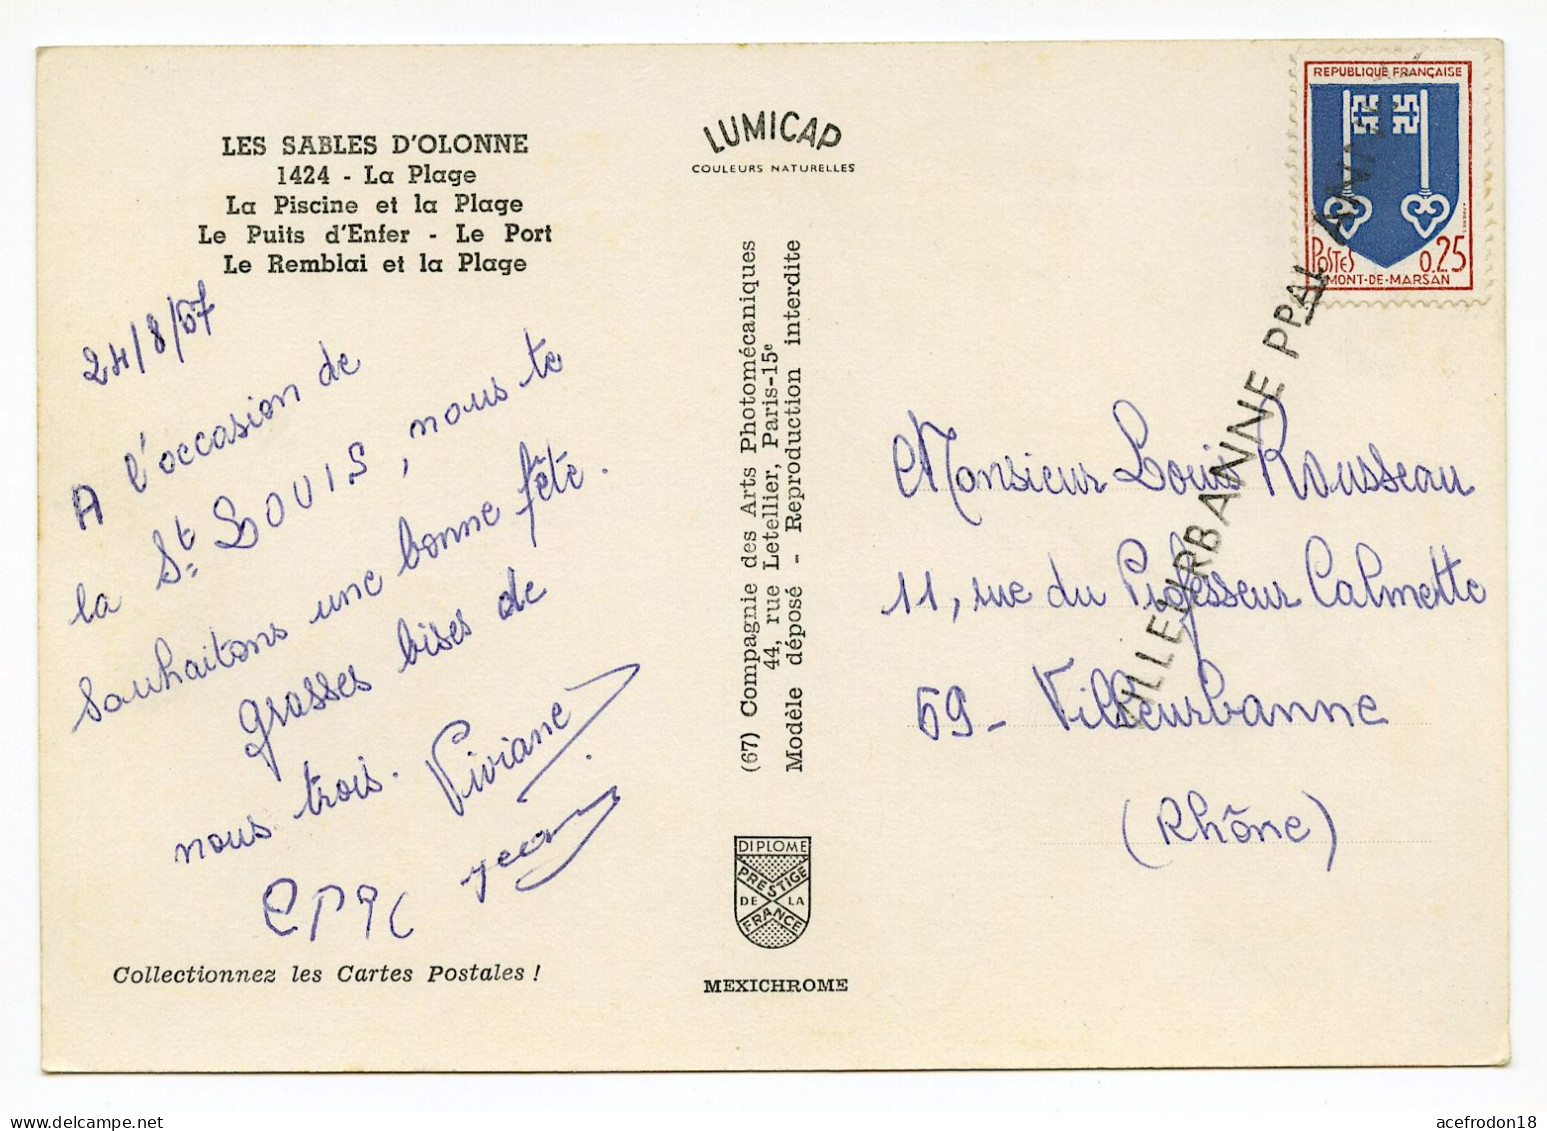 LES SABLES D'OLONNE
1424 - La Plage
La Piscine et la Plage
Le Puits d'Enfer - Le Port
Le Remblai et la Plage
24/8/67
A l'occasion de
la St. LOUIS, nous te
souhaitons une bonne fête.
grosses bises de
nous trois. Viviane
Collectionnez les Cartes Postales !
LUMICAP
COULEURS NATURELLES
(67) Compagnie des Arts Photomécaniques
44, rue Letellier, Paris-15e
Modèle déposé - Reproduction interdite
DIPLOME
PRESTIGE
DE LA
FRANCE
MEXICHROME
REPUBLIQUE FRANÇAISE
POSTES 0.25
MONT-DE-MARSAN
VILLEURBANNE PPAL
Monsieur Louis Rousseau
11, rue du Professeur Calmette
69 - Villeurbanne
(Rhône)
acefrodon18